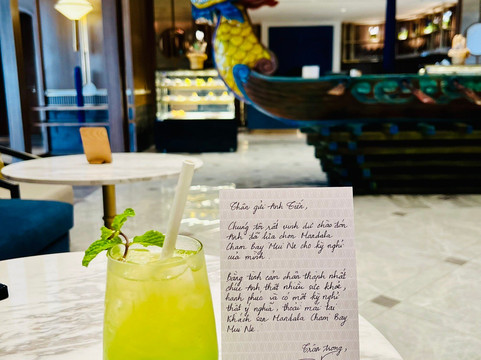 Thân gửi Anh Tiến,
Chúng tôi rất vinh dự chào đón
Anh đã lựa chọn Mandala
Cham Bay Mui Ne cho kỳ nghỉ
của mình.
Bằng tình cảm chân thành nhất
chúc Anh thật nhiều sức khỏe,
hạnh phúc và có một kỳ nghỉ
thật ý nghĩa, thoải mái tại
Khách sạn Mandala Cham Bay
Mui Ne.
Trân trọng,